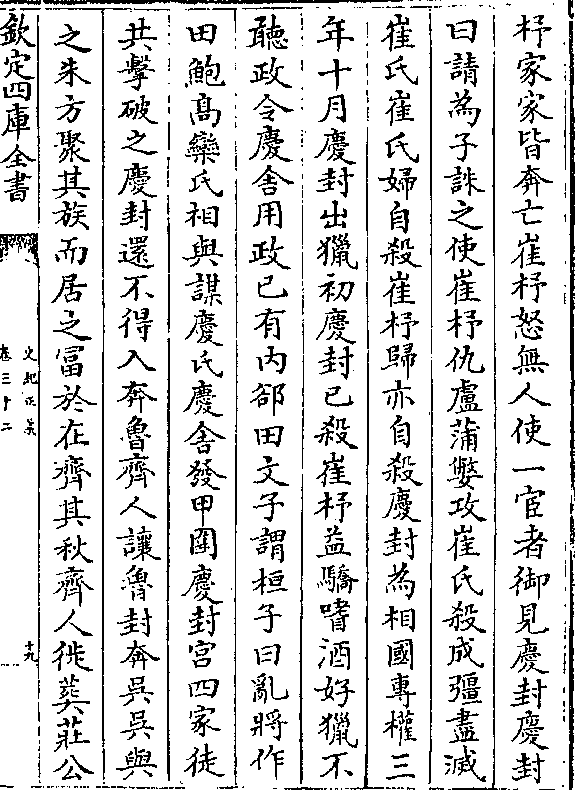 杼家家皆奔亡崔杼怒無人使一宦者御見慶封慶封
曰請為子誅之使崔杼仇盧蒲嫳攻崔氏殺成彊盡滅
崔氏崔氏婦自殺崔杼歸亦自殺慶封為相國專權三
年十月慶封出獵初慶封已殺崔杼益驕嗜酒好獵不
聽政令慶舍用政已有內郤田文子謂桓子曰亂將作
田鮑髙欒氏相與謀慶氏慶舍發甲圍慶封宮四家徒
共擊破之慶封還不得入奔魯齊人讓魯封奔吳吳與
之朱方聚其族而居之富於在齊其秋齊人徙葬莊公
欽定四庫全書
史記正義
卷三十二
十九